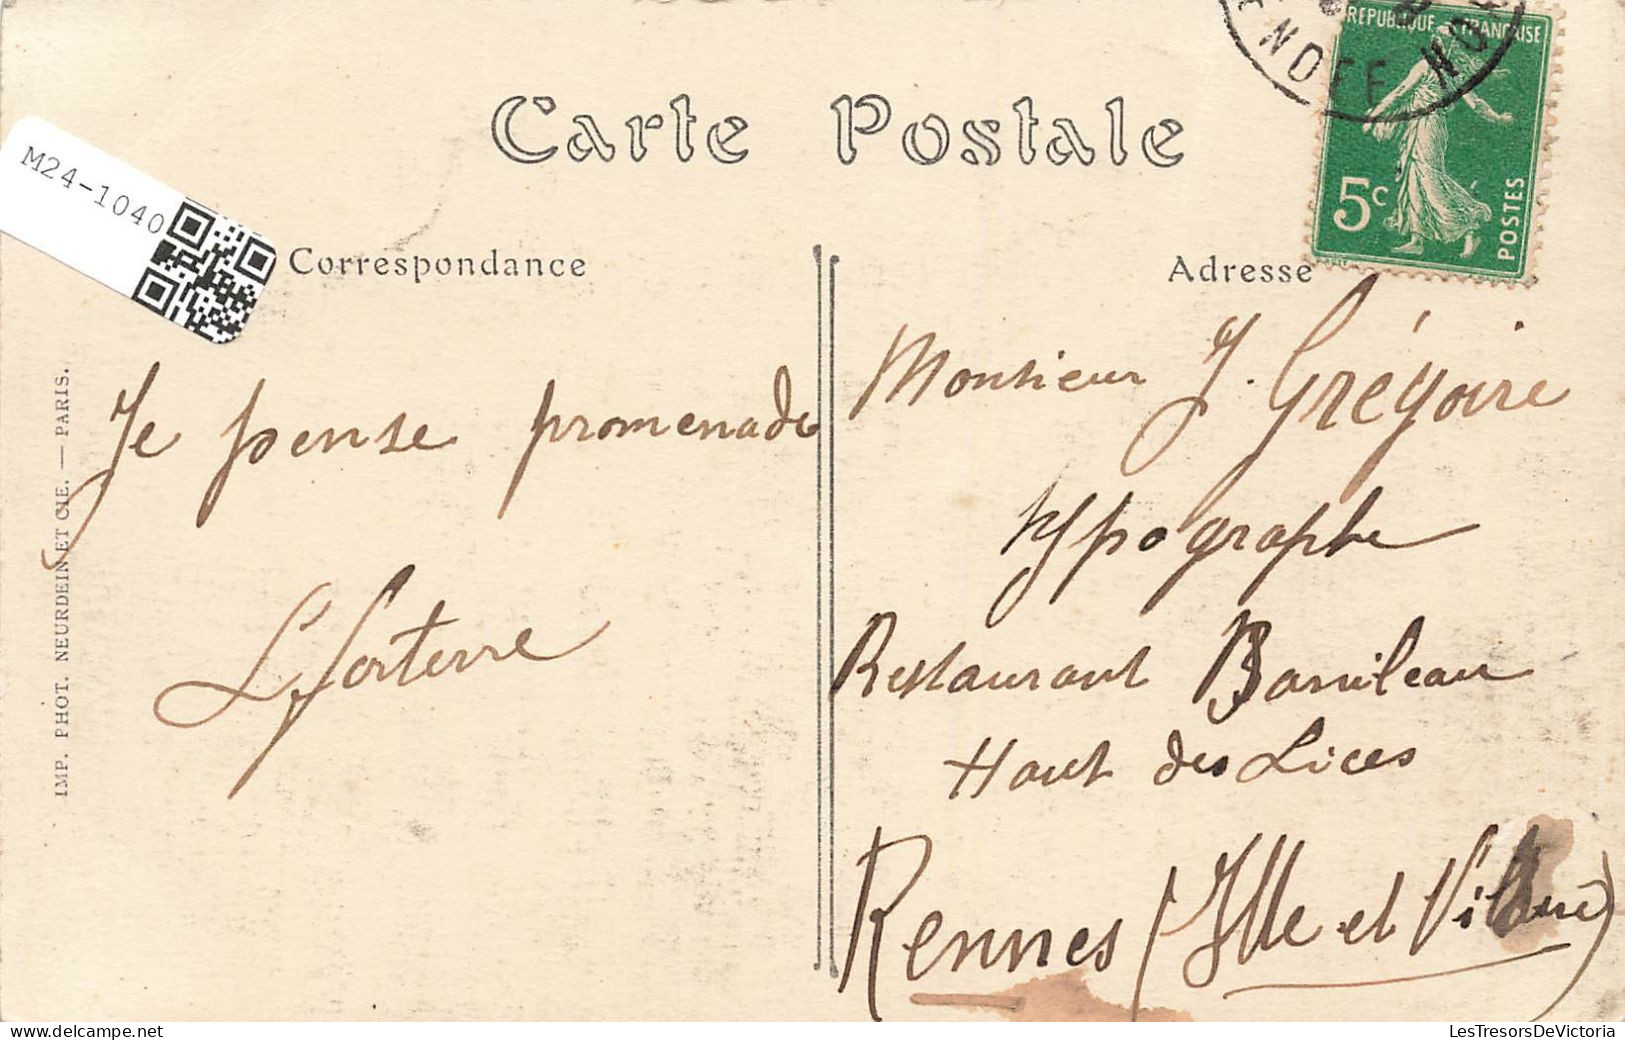 REPUBLIQUE FRANÇAISE
5c
POSTES
Carte Postale
M24-1040
Correspondance
Adresse
IMP. PHOT. NEURDEIN ET CIE. — PARIS.
Je pense promenade
Monsieur J. Grégoire
typographe
Restaurant
Haut des Lices
Rennes (Ille et Vilaine)
M24-1040
LesTresorsDeVictoria